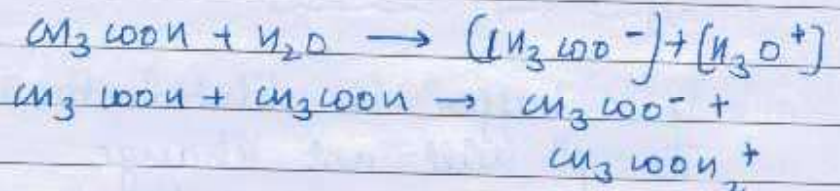 CH₃COOH + H₂O → (CH₃COO⁻) + [H₃O⁺]
CH₃COOH + CH₃COOH → CH₃COO⁻ +
CH₃COOH₂⁺